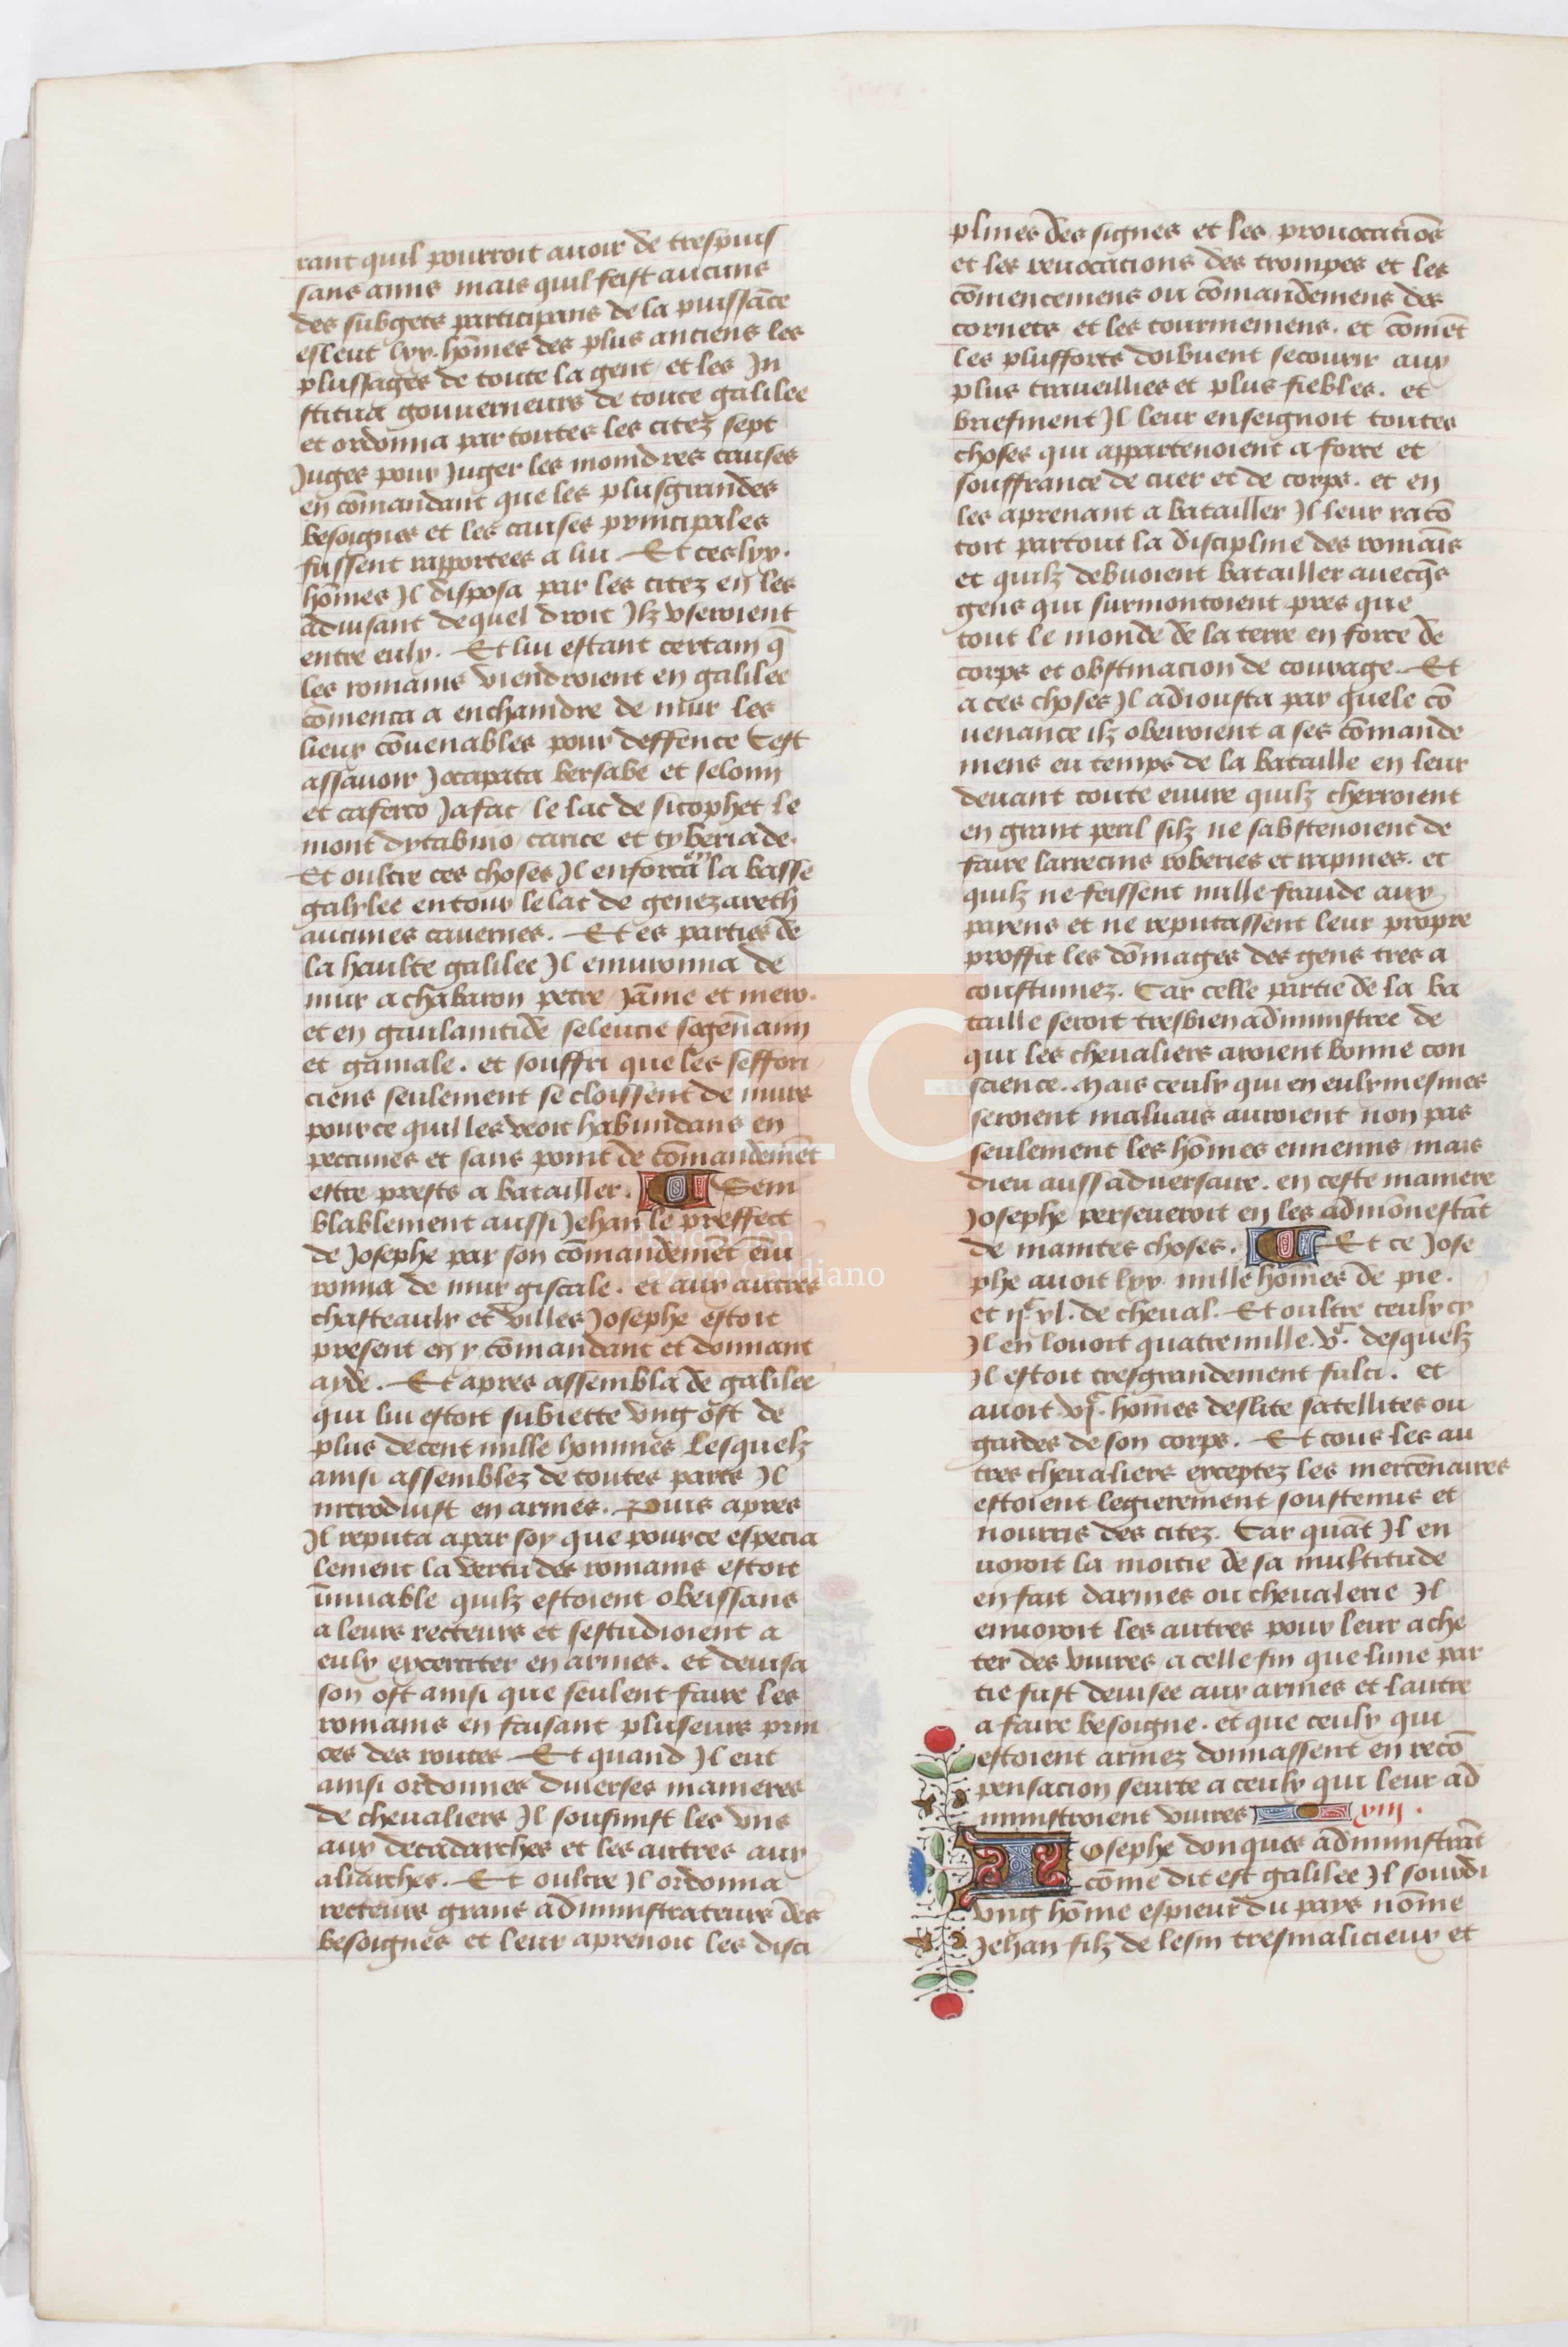 rant quil pourroit auoir de trespuis
sans amis mais quil feist aucuns
des subgets participans de la puissāce
esleut lxx. hōmes des plus anciens les
plussages de toute la gent / et les In
stitua gouuerneurs de toute galilee
et ordonna par toutes les citez sept
Juges pour Juger les moindres causes
en cōmandant que les plusgrandes
besoignes et les causes principales
fussent rapportees a lui. Et ces lxx.
hōmes Il disposa par les citez en les
aduisant de quel droit Ilz vseroient
entre eulx. Et lui estant certain q̄
les romains viendroient en galilee
cōmenca a enchaindre de mur les
lieux cōuenables pour deffence Cest
assauoir Jotapata bersabe et selonn
et caferco Jafac / le lac de sicophet / le
mont dytabuio / carice et tyberiade.
Et oultre ces choses Il enforca en la basse
galylee entour le lac de genezareth
aucunes cauernes. Et es parties de
la haulte galilee Il enuironna de
mur achabaron petre / Jāme et mero.
et en gaulanitide seleucie sogēnann
et gamale. et souffri que les seffori
ciens seulement se cloissent de murs
pource quil les veoit habundans en
peccunes et sans point de cōmandemēt
estre prests a batailler. Sem
blablement aussi Jehan le preffect
de Josephe par son cōmandemēt ēui
ronna de mur giscale. et aux autres
chasteaulx et villes Josephe estoit
present en y cōmandant et donnant
ayde. Et apres assembla de galilee
qui lui estoit subiette vng ost de
plus de cent mille hommes Lesquelz
ainsi assemblez de toutes pars Il
introduist en armes. Puis apres
Il reputa apar soy que pource especia
lement la vertu des romains estoit
īnuiable quilz estoient obeissans
a leurs recteurs et sestudioient a
eulx exerciter en armes. et deuisa
son ost ainsi que seulent faire les
romains en faisant pluseurs prin
ces des routes Et quand Il eut
ainsi ordonnes diuerses manieres
de cheualiers Il sousmist les vns
aux decadarches et les autres aux
aliarches. Et oultre Il ordonna
recteurs grans administrateurs des
besoignes et leur aprenoit les disci
plines des signes et les prouocatiōs
et les reuocacions des trompes et les
cōmencemens ou cōmandemens des
cornets et les tournemens. et cōmēt
les plusforts doibuent secourir aux
plus traueillies et plus fiebles. et
briefment Il leur enseignoit toutes
choses qui appartenoient a force et
souffrance de cuer et de corps. et en
les aprenant a batailler Il leur racō
toit partout la discipline des romaīs
et quilz debuoient batailler auecq̄s
gens qui surmontoient pres que
tout le monde de la terre en force de
corps et obstinacion de courage. Et
a ces choses Il adiousta par quele cō
uenance ilz obeiroient a ses cōmande
mens eu temps de la bataille en leur
deuant toute euure quilz cherroient
en grant peril silz ne sabstenoient de
faire larrecins roberies et rapines. et
quilz ne feissent nulle fraude aux
parens et ne reputassent leur propre
proffit les dōmages des gens tres a
coustumez. Car celle partie de la ba
taille seroit tresbien administree de
qui les cheualiers aroient bonne con
science. Mais ceulx qui en eulxmesmes
seroient maluais auroient non pas
seulement les hōmes ennemis mais
dieu auss aduersaire. en ceste maniere
Josephe perseueroit en les admōnestāt
de maintes choses. Et ce Jose
phe auoit lxx mille hōmes de pie.
et ijc xl. de cheual. Et oultre ceulx cy
Il en louoit quatremille. vc. desquelz
Il estoit tresgrandement fulci. et
auoit vjc. hōmes deslite satellites ou
gardes de son corps. Et tous les au
tres cheualiers exceptez les mercēnaires
estoient legierement soustenus et
nourris des citez. Car quāt Il en
uoioit la moitie de sa multitude
en fait darmes ou cheualerie Il
enuoioit les autres pour leur ache
ter des viures / a celle fin que lune par
tie fust deuisee aux armes et lautre
a faire besoigne. et que ceulx qui
estoient armez donnassent en recō
pensacion seurte a ceulx qui leur ad
ministroient viures viii.
Josephe donques administrāt
cōme dit est galilee Il sourdi
vng hōme espieur du pays nōme
Jehan filz de lesin tresmalicieux et
FLG
Fundación
Lázaro Galdiano